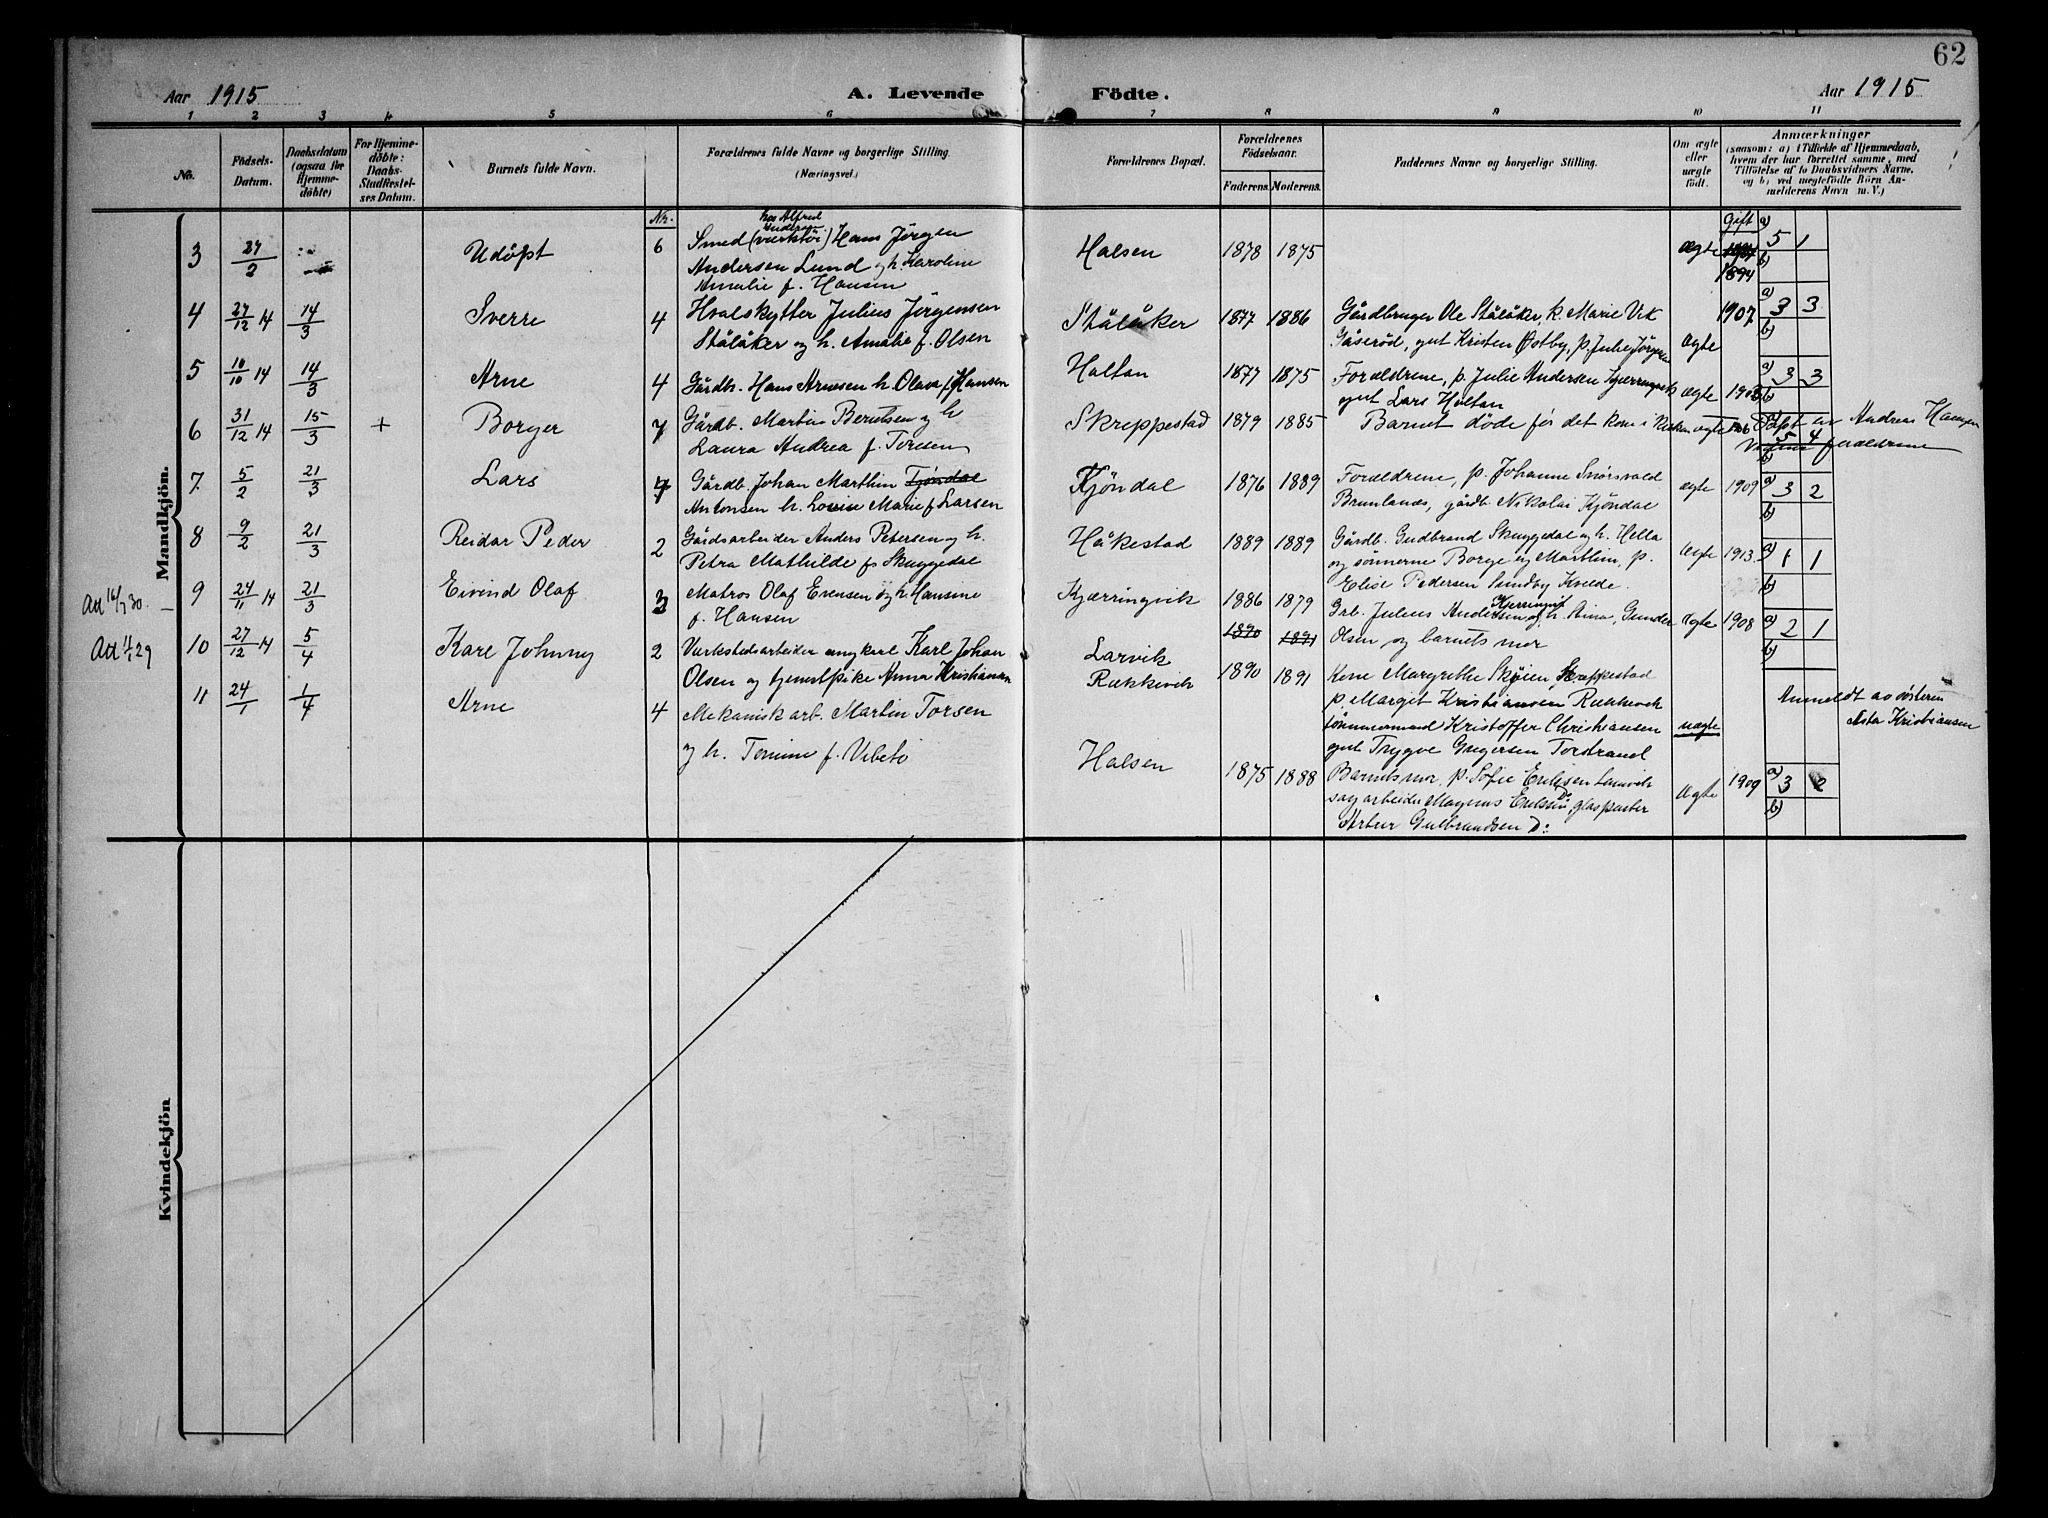 62
Aar 1915 A. Levende Födte. Aar 1915
1 2 3 4 5 6 7 8 9 10 11
No.
Födsels-Datum.
Daabsdatum (ogsaa for Hjemmedöbte)
For Hjemmedöbte: Daabs-Stadfæstelses Datum.
Barnets fulde Navn.
Forældrenes fulde Navne og borgerlige Stilling.
(Næringsvei.)
Forældrenes Bopæl.
Forældrenes Födselsaar.
Faderens. Moderens.
Faddernes Navne og borgerlige Stilling.
Om ægte eller uægte födt.
Anmærkninger
(saasom: a) i Tilfælde af Hjemmedaab, hvem der har forrettet samme, med Tilföielse af to Daabsvidners Navne, og b) ved uægtefödte Börn Anmelderens Navn m. V.)
Mandkjön.
Nr.
Gift
3 27/2 Udöpt 6 Smed (verktöi hos Alfred Andersen) Hans Jörgen
Andersen Lund og h. Karoline
Amalie f. Hansen
Halsen 1878 1875 ægte 1894 a) 5 1 b)
4 27/12 14 14/3 Sverre 4 Hvalskytter Julius Jörgensen
Stålåker og h. Amalie f. Olsen
Stålåker 1877 1886 Gårdbruger Ole Stålåker, k. Marie Vik
Gåseröd, gut Kristen Østby, p. Julie Jörgensen ægte 1907 a) 3 3 b)
5 10/10 14 14/3 Arne 4 Gårdb. Hans Arnesen h. Olava f. Hansen
Holtan 1877 1875 Forældrene, p. Julie Andersen Kjærringvik
gut Lars Holtan ægte a) 3 3 b)
6 31/12 14 15/3 + Borger 7 Gårdb. Martin Berntsen og h
Laura Andrea f. Torsen
Skreppestad 1879 1885 Barnet döde før det kom i Kirken ægte Döpt av Andreas Hansen
5 4 b) forældrene
7. 5/2 21/3 Lars 4 Gårdb. Johan Marthin Tjöndal
Antonsen h. Lovise Marie f Larsen
Kjöndal 1876 1889 Forældrene, p. Johanne
Brunlanes, gårdb. Nikolai Kjöndal ægte 1909 a) 3 2 b)
8 9/2 21/3 Reidar Peder 2 Gårdsarbeider Anders Petersen og h.
Petra Mathilde fs Skuggedal
Håkestad 1889 1889 Gårdb. Gudbrand Skuggedal og h. Hella
og sönnerne Borge og Marthin, p.
Elise Pedersen Sundby Kvelde. ægte 1913 a) 1 1 b)
Att 16/7 30. 9 24/11 14 21/3 Eivind Olaf 3 Matros Olaf Evensen og h. Hansine
f. Hansen
Kjærringvik 1886 1879 Grb. Julius Andersen Kjerringvik og h. Anna, Gunder
Olsen og barnets mor ægte 1908 a) 2 1 b)
1890 1891
Att 11/1 29 10 27/12 14 5/4 Kare Johnny 2 Verkstedsarbeider ungkarl Karl Johan
Olsen og tjenestpike Anna Kristiansen
Larvik
Rækkevik 1890 1891 Kone Margrethe Skøien Skreppestad
p. Margit Kristiansen Rækkevik
tömmermand Kristoffer Christiansen
gut Trygve Gregersen Torstrand uægte Anmeldt av sösteren
Asta Kristiansen
11 24/1 1/4 Arne 4 Mekanisk arb. Martin Torsen
og h. Tomine f. Vibeto
Halsen 1875 1888 Barnets mor, p. Sofie Eriksen Larvik
sagarbeider Magnus Eriksen Do, glaspuster
Artur Gulbrandsen D: ægte 1909 a) 3 2 b)
Kvindekjön